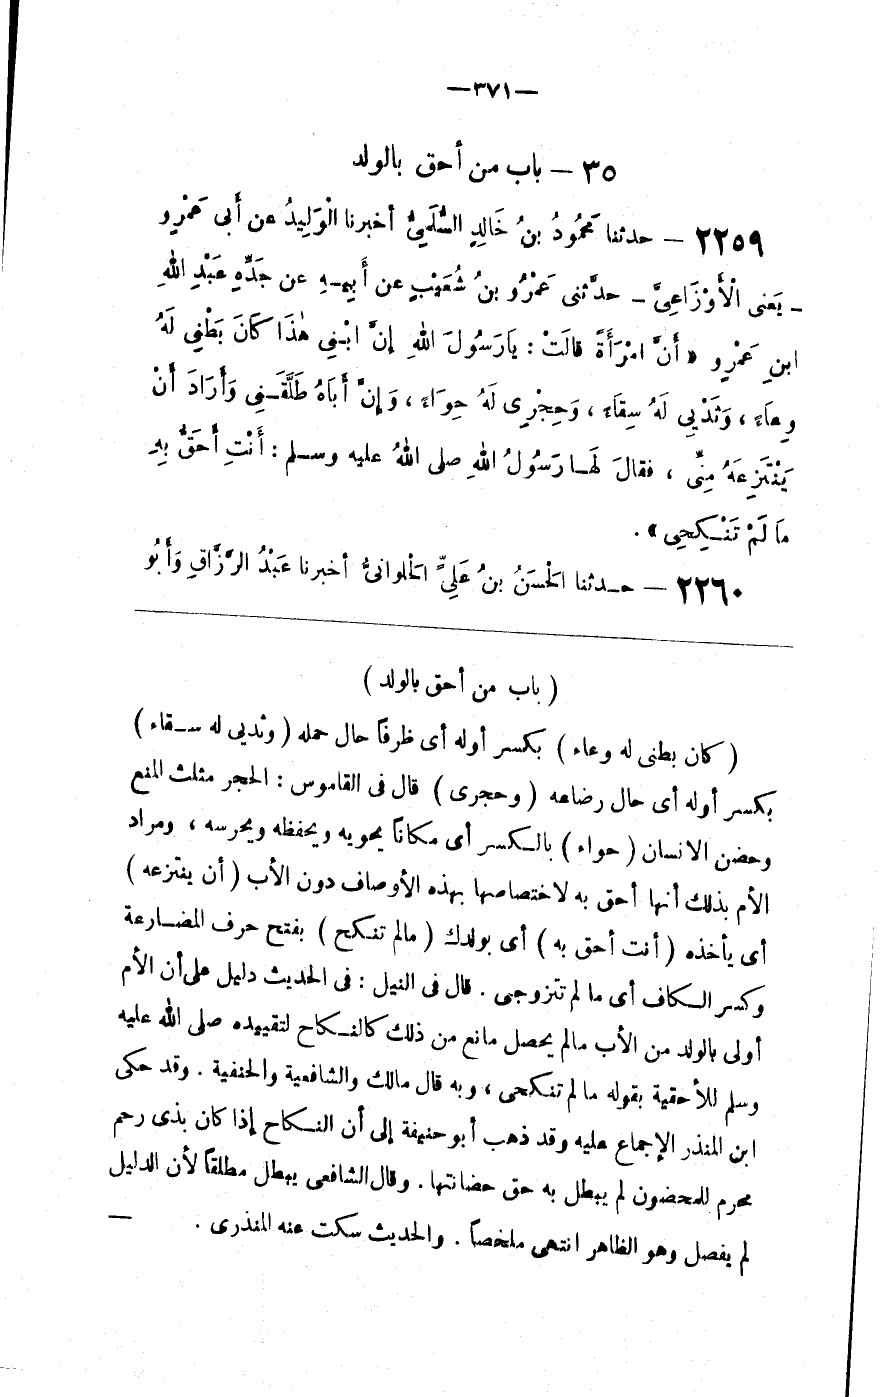 —٣٧١—
٣٥ — باب من أحق بالولد
٢٢٥٩ — حدثنا مَحْمُودُ بنُ خَالِدٍ السُّلَمِيُّ أخبرنا الْوَلِيدُ عن أَبى عَمْرٍو
ـ يَعنى الْأَوْزَاعِيَّ ـ حدَّثنى عَمْرُو بنُ شُعَيْبٍ عن أَبِيهِ عن جَدِّهِ عَبْدِ اللهِ
ابنِ عَمْرٍو « أَنَّ امْرَأَةً قالَتْ : يَارَسُولَ اللهِ إنَّ ابْنِى هٰذَا كَانَ بَطْنِى لَهُ
وِعَاءً ، وَثَدْيِى لَهُ سِقَاءً ، وَحِجْرِى لَهُ حِوَاءً ، وَإنَّ أَبَاهُ طَلَّقَنِى وَأَرَادَ أَنْ
يَنْتَزِعَهُ مِنِّى ، فقالَ لَهَا رَسُولُ اللهِ صلى اللهُ عليه وسلم : أَنْتِ أَحَقُّ بِهِ
مَا لَمْ تَنْكِحِى » .
٢٢٦٠ — حدثنا الْحَسَنُ بنُ عَلِىٍّ الْحلوانىُّ أخبرنا عَبْدُ الرَّزَّاقِ وَأَبُو
( باب من أحق بالولد )
( كان بطنى له وعاء ) بكسر أوله أى ظرفاً حال حمله ( وثديى له سقاء )
بكسر أوله أى حال رضاعه ( وحجرى ) قال فى القاموس : الحجر مثلث المنع
وحضن الانسان ( حواء ) بالكسر أى مكاناً يحويه ويحفظه ويحرسه ، ومراد
الأم بذلك أنها أحق به لاختصاصها بهذه الأوصاف دون الأب ( أن ينتزعه )
أى يأخذه ( أنت أحق به ) أى بولدك ( مالم تنكح ) بفتح حرف المضارعة
وكسر الكاف أى ما لم تتزوجى . قال فى النيل : فى الحديث دليل على أن الأم
أولى بالولد من الأب مالم يحصل مانع من ذلك كالنكاح لتقييده صلى الله عليه
وسلم للأحقية بقوله ما لم تنكحى ، وبه قال مالك والشافعية والحنفية . وقد حكى
ابن المنذر الإجماع عليه وقد ذهب أبو حنيفة إلى أن النكاح إذا كان بذى رحم
محرم للمحضون لم يبطل به حق حضانتها . وقال الشافعى يبطل مطلقاً لأن الدليل
لم يفصل وهو الظاهر انتهى ملخصاً . والحديث سكت عنه المنذرى . —